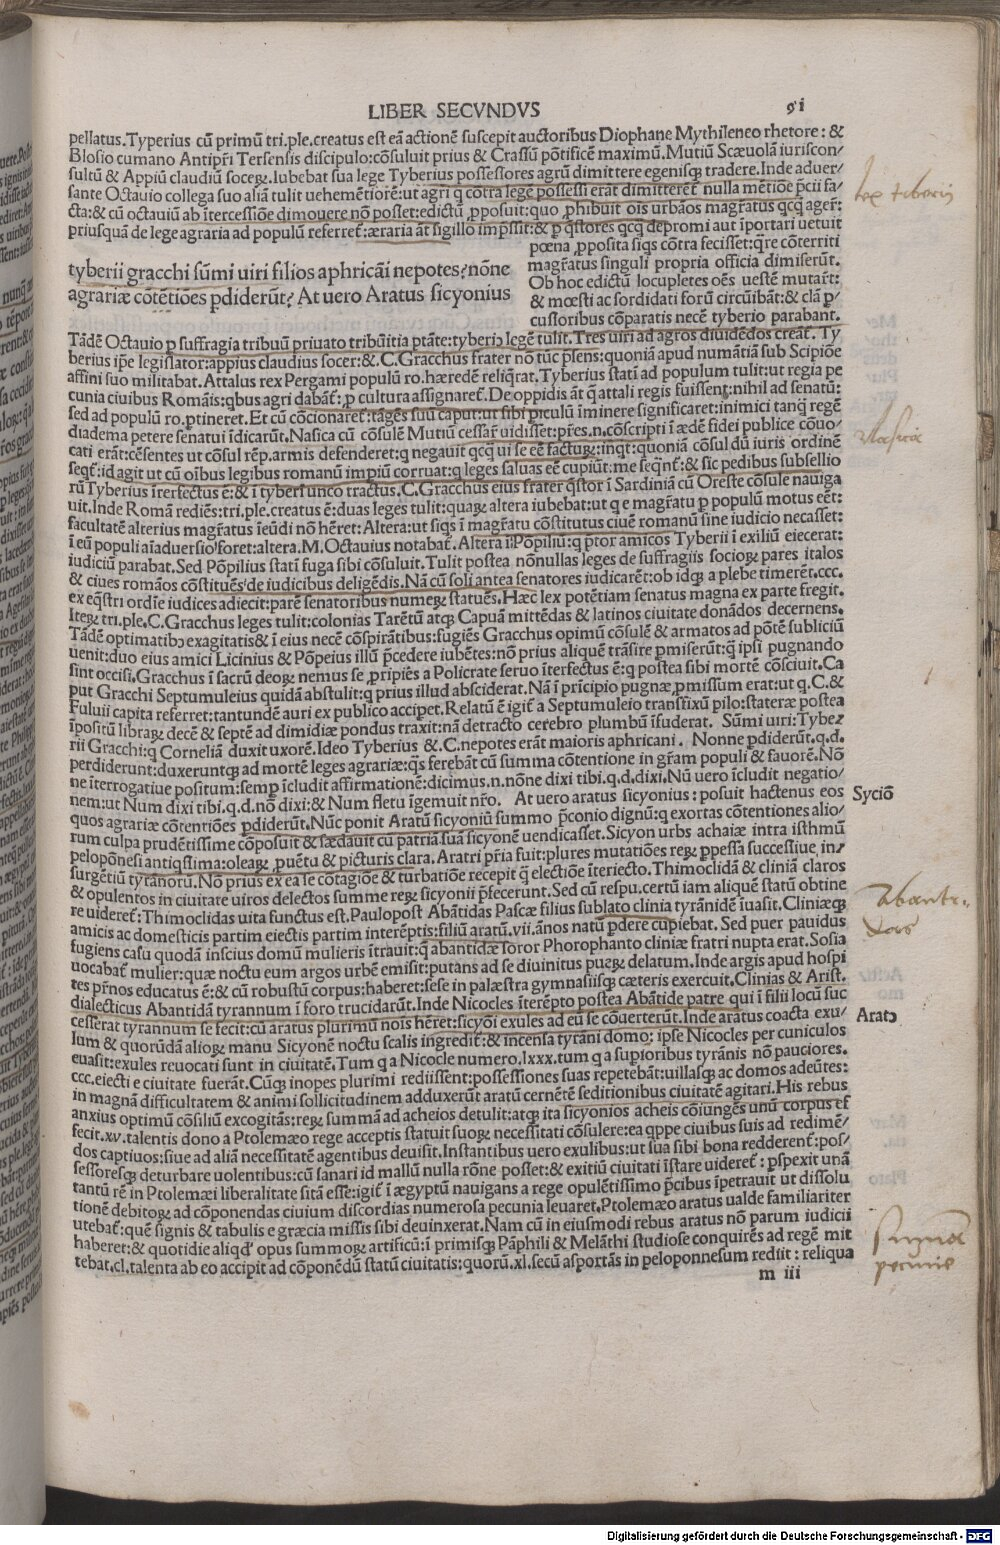 LIBER SECVNDVS 91
pellatus.Typerius cū primū tri.ple.creatus est eā actionē suscepit auctoribus Diophane Mythileneo rhetore: &
Blosio cumano Antipr̄i Tersensis discipulo:cōsuluit prius & Crassū pōtificē maximū.Mutiū Scæuolā iuriscon/
sultū & Appiū claudiū soceꝝ.Iubebat sua lege Tyberius possessores agrū dimittere egenisq̨ tradere.Inde aduer/
sante Octauio collega suo aliā tulit uehemētiorē:ut agri q cōtra legē possessi erāt dimitteret̄ nulla mētiōe p̄cii fa/
cta:& cū octauiū ab ītercessiōe dimouere nō posset:edictū ꝓposuit:quo ꝓhibuit oīs urbāos magr̄atus qcq̄ ager̄:
priusquā de lege agraria ad populū referret̄:æraria āt sigillo imp̄ssit:& ꝑ q̄stores qcq̄ depromi aut īportari uetuit
pœna ꝓposita siqs cōtra fecisset:q̄re cōterriti
magr̄atus singuli propria officia dimiserūt.
Ob hoc edictū locupletes oēs uestē mutar̄t:
& mœsti ac sordidati forū circūibāt:& clā ꝑ
cussoribus cōparatis necē tyberio parabant.
tyberii gracchi sūmi uiri filios aphricāi nepotes?nōne
agrariæ cōtētiōes pdiderūt? At uero Aratus sicyonius
Tādē Octauio ꝑ suffragia tribuū priuato tribūitia ptāte:tyberiꝰ legē tulit.Tres uiri ad agros diuidēdos creāt̄. Ty
berius ip̄e legislator:appius claudius socer:&.C.Gracchus frater nō tūc p̄sens:quoniā apud numātiā sub Scipiōe
affini suo militabat.Attalus rex Pergami populū ro.hæredē reliq̄rat.Tyberius statī ad populum tulit:ut regia pe
cunia ciuibus Romāis:qbus agri dabāt̄:ꝑ cultura assignaret̄.De oppidis āt q̄ attali regis fuissent:nihil ad senatū:
sed ad populū ro.ptineret.Et cū cōcionaret̄:tagēs suū caput:ut sibi piculū īminere significaret:inimici tanq̄ regē
diadema petere senatui īdicarūt.Nasica cū cōsulē Mutiū cessar̄ uidisset:pr̄es.n.cōscripti ī ædē fidei publice cōuo/
cati erāt:cēsentes ut cōsul rēp.armis defenderet:q negauit qcq̄ ui se eē factuꝝ:inqt:quoniā cōsul dū iuris ordinē
seqt̄:id agit ut cū oībus legibus romanū impiū corruat:q leges saluas eē cupiūt:me seqnt̄:& sic pedibus subsellio
rū Tyberius īterfectus ē:& ī tyberī unco tractus.C.Gracchus eius frater q̄stor ī Sardiniā cū Oreste cōsule nauiga
uit.Inde Romā rediēs:tri.ple.creatus ē:duas leges tulit:quaꝝ altera iubebat:ut q e magr̄atu ꝑ populū motus eēt:
facultatē alterius magr̄atus īeūdi nō hēret:Altera:ut siqs ī magr̄atu cōstitutus ciuē romanū sine iudicio necasset:
ī eū populi aīaduersio foret:altera.M.Octauius notabat̄.Altera ī Pōpiliū:q p̄tor amicos Tyberii ī exiliū eiecerat:
iudiciū parabat.Sed Pōpilius statī fuga sibi cōsuluit.Tulit postea nōnullas leges de suffragiis socioꝝ pares italos
& ciues romāos cōstituēs:de iudicibus deligēdis.Nā cū soli antea senatores iudicarēt:ob idq̨ a plebe timerēt.ccc.
ex eq̄stri ordīe iudices adiecit:parē senatoribus numeꝝ statuēs.Hæc lex potētiam senatus magna ex parte fregit.
Iteꝝ tri.ple.C.Gracchus leges tulit:colonias Tarētū atq̨ Capuā mittēdas & latinos ciuitate donādos decernens.
Tādē optimatibꝰ exagitatis & ī eius necē cōspirātibus:fugiēs Gracchus opimū cōsulē & armatos ad pōtē subliciū
uenit:duo eius amici Licinius & Pōpeius illū p̄cedere iubētes:nō prius aliquē trāsire pmiserūt:q̄ ipsi pugnando
sint occisi.Gracchus ī sacrū deoꝝ nemus se ꝓripiēs a Policrate seruo īterfectus ē:q postea sibi mortē cōsciuit.Ca
put Gracchi Septumuleius quidā abstulit:q prius illud absciderat.Nā ī prīcipio pugnæ ꝓmissum erat:ut q.C.&
Fuluii capita referret:tantundē auri ex publico accipet.Relatū ē igit̄ a Septumuleio transfixū pilo:stateræ postea
īpositū libraꝝ decē & septē ad dimidiæ pondus traxit:nā detracto cerebro plumbū īfuderat. Sūmi uiri:Tybe/
rii Gracchi:q Corneliā duxit uxorē.Ideo Tyberius &.C.nepotes erāt maioris aphricani. Nonne pdiderūt.q.d.
perdiderunt:duxeruntq̨ ad mortē leges agrariæ:q̄s ferebāt cū summa cōtentione in gr̄am populi & fauorē.Nō
ne īterrogatiue positum:semp īcludit affirmationē:dicimus.n.nōne dixi tibi.q.d.dixi.Nū uero īcludit negatio/
nem:ut Num dixi tibi.q.d.nō dixi:& Num fletu īgemuit nr̄o. At uero aratus sicyonius:posuit hactenus eos
quos agrariæ cōtentiōes pdiderūt.Nūc ponit Aratū sicyoniū summo p̄conio dignū:q exortas cōtentiones alio/
rum culpa prudētissime cōposuit & sædauit cū patriā suā sicyonē uendicasset.Sicyon urbs achaiæ intra isthmū
peloponēsi antiqssima:oleaꝝ ꝓuētu & picturis clara.Aratri pr̄ia fuit:plures mutatiōes reꝝ ppessa successiue,in/
surgētiū tyrānorū.Nō prius ex ea se cōtagiōe & turbatiōe recepit q̄ electiōe īteriecto.Thimoclidā & cliniā claros
& opulentos in ciuitate uiros delectos summe reꝝ sicyonii p̄fecerunt.Sed cū respu.certū iam aliquē statū obtine
re uideret̄:Thimoclidas uita functus est.Paulopost Abātidas Pascæ filius sublato clinia tyrānidē īuasit.Cliniæq̨
amicis ac domesticis partim eiectis partim interēptis:filiū aratū.vii.ānos natū pdere cupiebat. Sed puer pauidus
fugiens casu quodā īnscius domū mulieris ītrauit:q̄ abantidæ soror Phorophanto cliniæ fratri nupta erat.Sosia
uocabat̄ mulier:quæ noctu eum argos urbē emisit:putans ad se diuinitus pueꝝ delatum.Inde argis apud hospi
tes pr̄nos educatus ē:& cū robustū corpus:haberet:sese in palæstra gymnasiisq̨ cæteris exercuit.Clinias & Arist.
dialecticus Abantidā tyrannum ī foro trucidarūt.Inde Nicocles īterēpto postea Abātide patre qui ī filii locū suc
cesserat tyrannum se fecit:cū aratus plurimū noīs hēret:sicyōi exules ad eū se cōuerterūt.Inde aratus coacta exu/
lum & quorūdā alioꝝ manu Sicyonē noctu scalis ingredit̄:& incensa tyrāni domo: ipse Nicocles per cuniculos
euasit:exules reuocati sunt in ciuitatē.Tum q a Nicocle numero.lxxx.tum q a supioribus tyrānis nō pauciores.
ccc.eiecti e ciuitate fuerāt.Cūq̨ inopes plurimi rediissent:possessiones suas repetebāt:uillasq̨ ac domos adeūtes:
in magnā difficultatem & animi sollicitudinem adduxerūt aratū cernētē seditionibus ciuitatē agitari.His rebus
anxius optimū cōsiliū excogitās:reꝝ summā ad acheios detulit:atq̨ ita sicyonios acheis cōiungēs unū corpus ef
fecit.xv.talentis dono a Ptolemæo rege acceptis statuit suoꝝ necessitati cōsulere:ea qppe ciuibus suis ad redimē/
dos captiuos:siue ad aliā necessitatē agentibus deuisit.Instantibus uero exulibus:ut sua sibi bona redderent̄:pos/
sessoresq̨ deturbare uolentibus:cū sanari id mallū nulla rōne posset:& exitiū ciuitati īstare uideret̄: pspexit unā
tantū rē in Ptolemæi liberalitate sitā esse:igit̄ ī ægyptū nauigans a rege opulētissimo p̄cibus īpetrauit ut dissolu
tionē debitoꝝ ad cōponendas ciuium discordias numerosa pecunia leuaret.Ptolemæo aratus ualde familiariter
utebat̄:quē signis & tabulis e græcia missis sibi deuinxerat.Nam cū in eiusmodi rebus aratus nō parum iudicii
haberet:& quotidie aliqd opus summoꝝ artificū:ī primisq̨ Pāphili & Melāthi studiose conquirēs ad regē mit
tebat.cl.talenta ab eo accipit ad cōponēdū statū ciuitatis:quorū.xl.secū asportās in peloponnesum rediit:reliqua
m iii
lex tiberii
Nasica
Syciō
Abanti-
das
Aratꝰ
Summa
pecunie
Digitalisierung gefördert durch die Deutsche Forschungsgemeinschaft - DFG